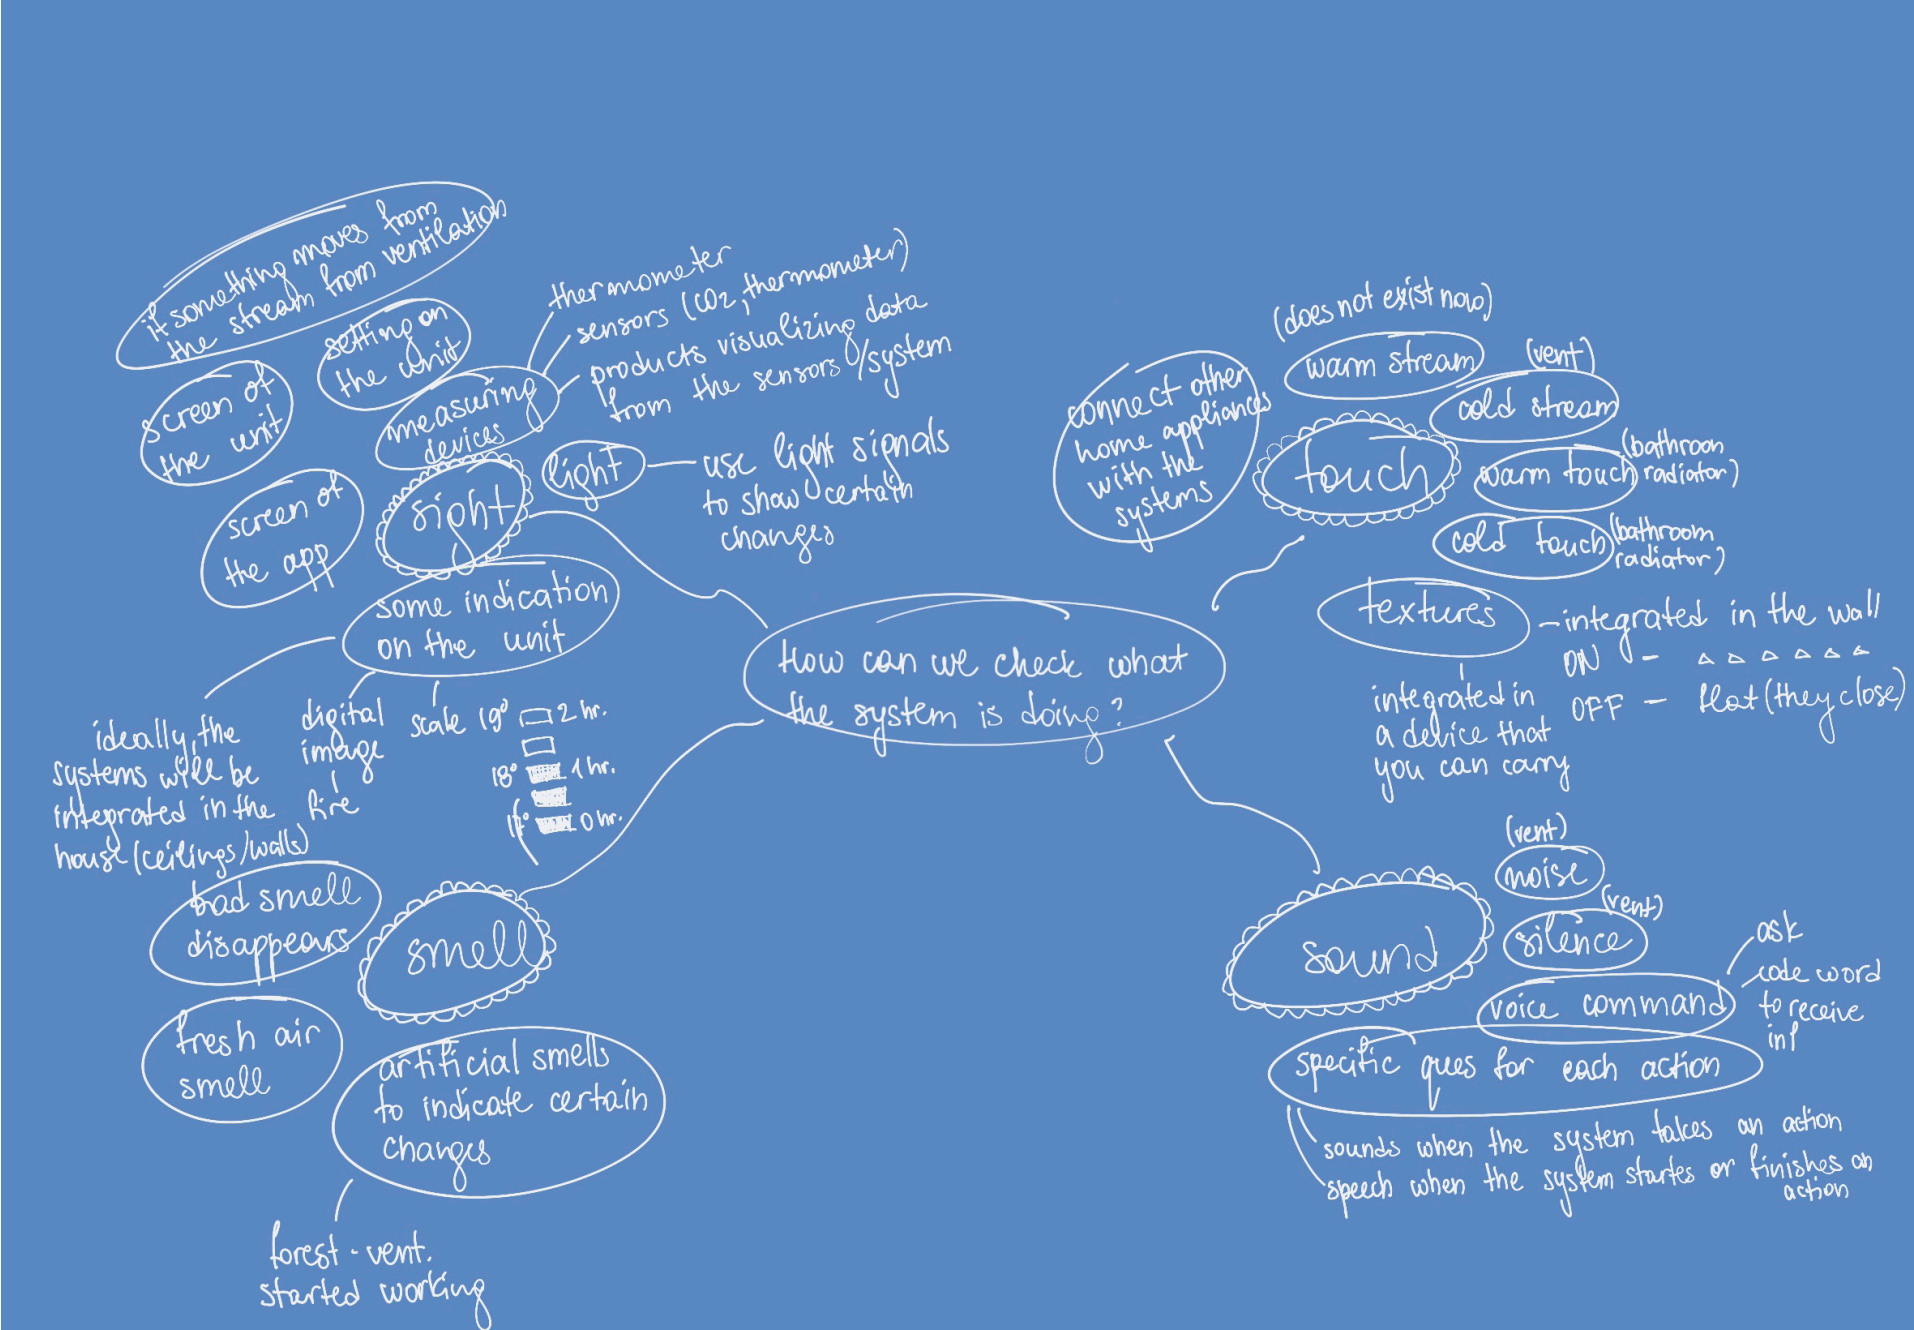 How can we check what
the system is doing?
sight
if something moves from
the stream from ventilation
setting on
the unit
screen of
the unit
measuring
devices
thermometer
sensors (CO2, thermometer)
products visualizing data
from the sensors/system
light
use light signals
to show certain
changes
screen of
the app
some indication
on the unit
ideally, the
systems will be
integrated in the
house (ceilings/walls)
digital
image
fire
scale 19° 2 hr.
18° 1 hr.
17° 0 hr.
smell
bad smell
disappears
fresh air
smell
artificial smells
to indicate certain
changes
forest - vent.
started working
touch
connect other
home appliances
with the
systems
(does not exist now)
warm stream
(vent)
cold stream
warm touch (bathroom
radiator)
cold touch (bathroom
radiator)
textures
- integrated in the wall
ON - △ △ △ △ △ △
OFF - flat (they close)
integrated in
a device that
you can carry
sound
(vent)
noise
(vent)
silence
voice command
ask
code word
to receive
inf
specific ques for each action
sounds when the system takes an action
speech when the system startes or finishes an
action